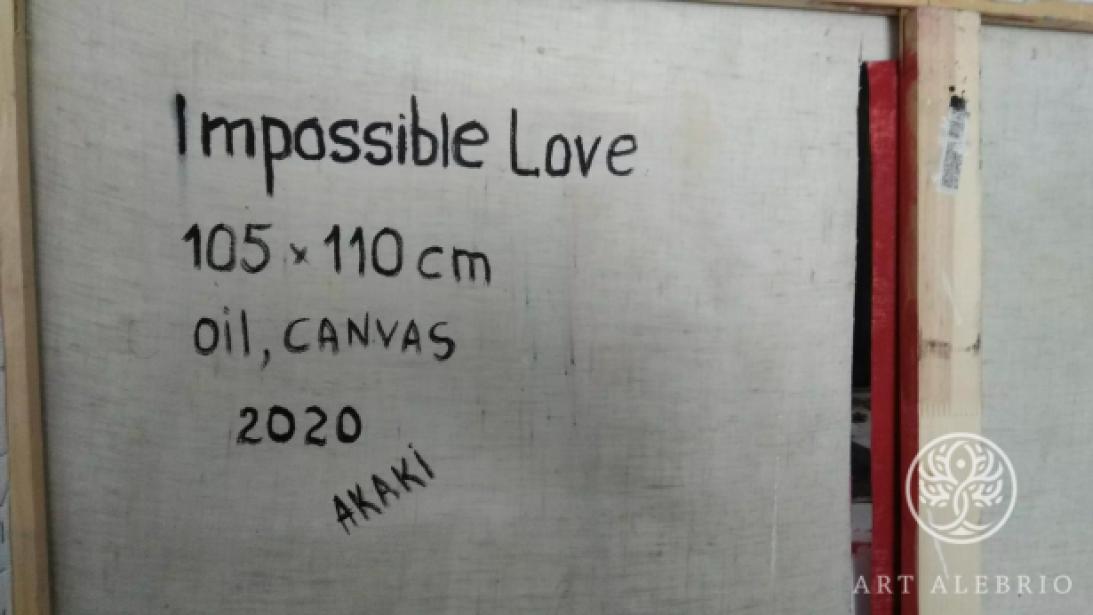 Impossible Love
105 × 110 cm
oil, CANVAS
2020
AKAKi
ART ALEBRIO